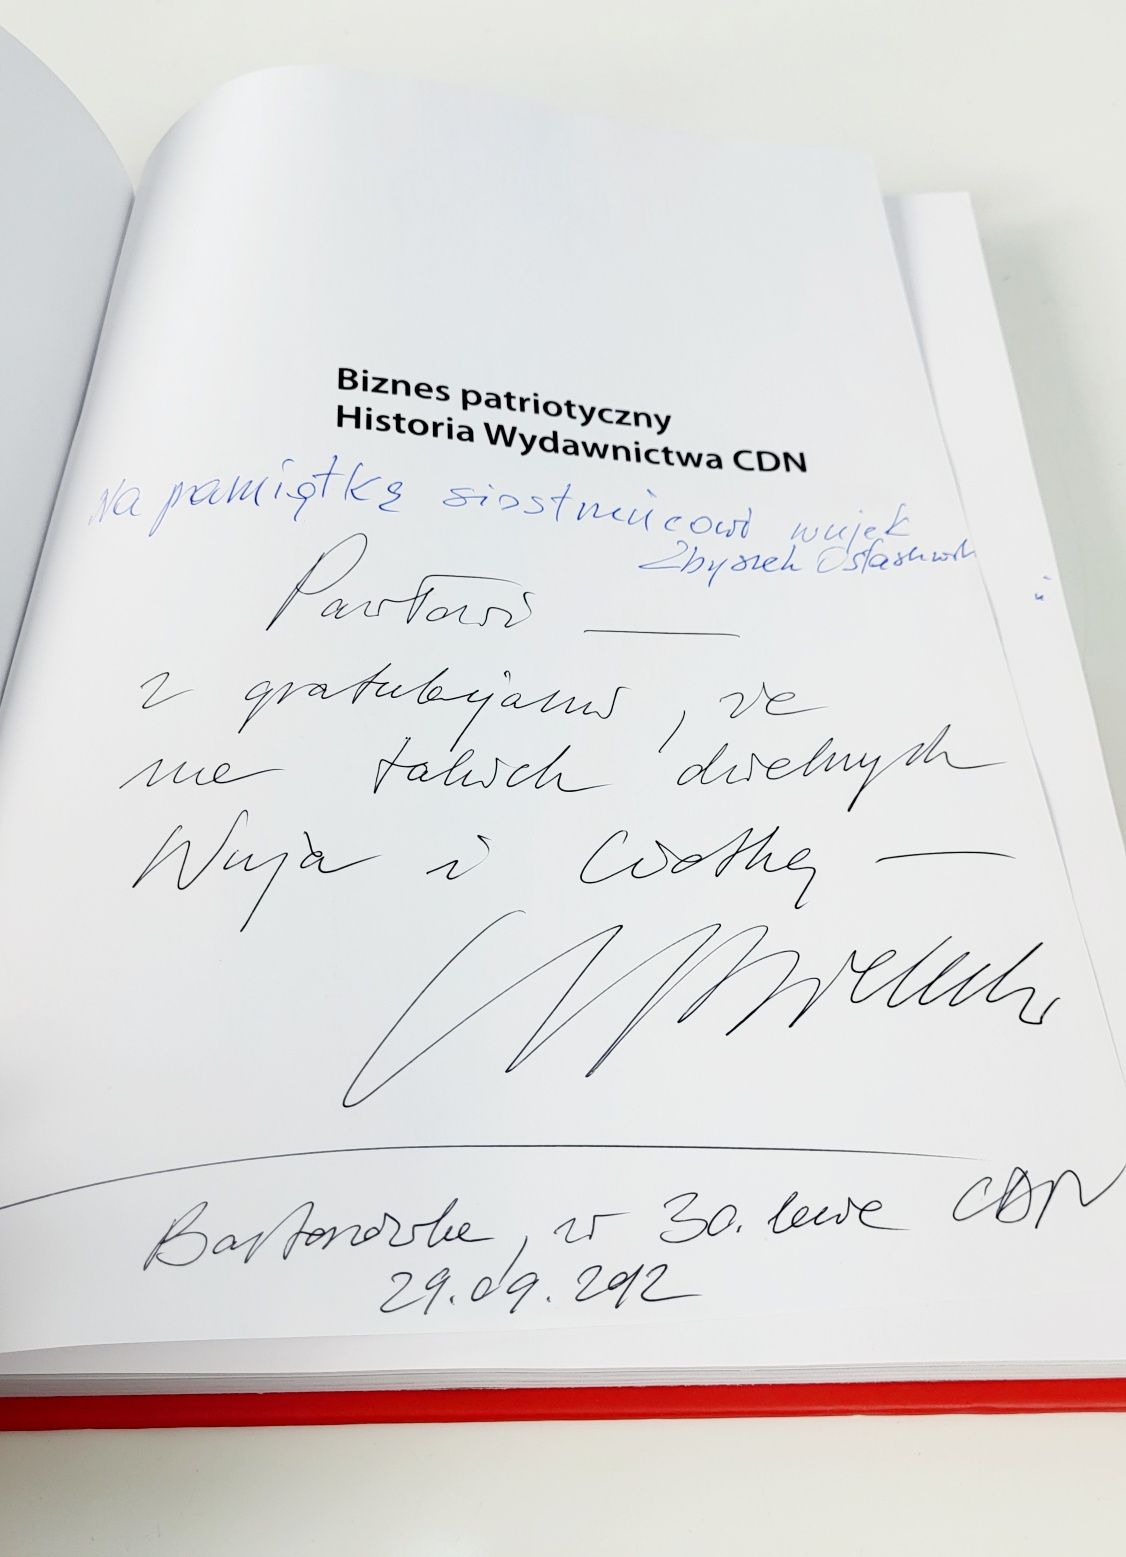 Biznes patriotyczny
Historia Wydawnictwa CDN
Na pamiątkę siostrzeńcowi wujek
Zbyszek Ostaszewski
Pawłowi —
z gratulacjami, że
ma takich dzielnych
Wuja i Ciotkę —
, w 30. lecie CDN
29.09.2012